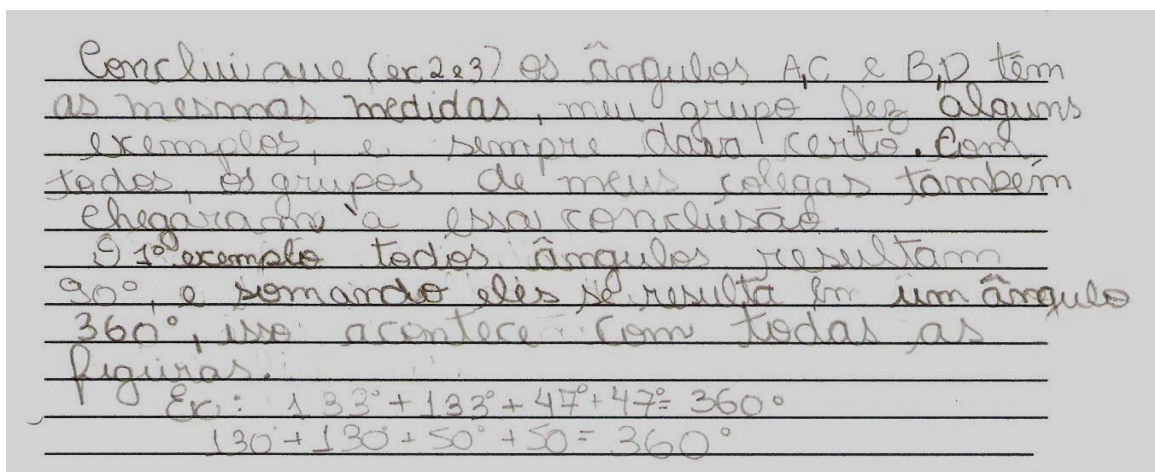 Conclui que (ex. 2 e 3) os ângulos A,C e B,D têm
as mesmas medidas, meu grupo fez alguns
exemplos, e sempre dava certo. Com
todos, os grupos de meus colegas também
chegaram à essa conclusão.
O 1º exemplo todos ângulos resultam
90°, e somando eles se resulta em um ângulo
360°, isso acontece com todas as
figuras.
Ex: 133° + 133° + 47° + 47° = 360°
130° + 130° + 50° + 50 = 360°